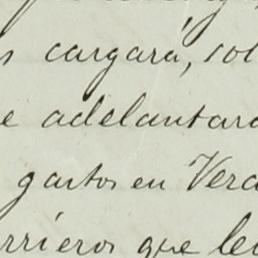 s cargará, sol
e adelantara
gastos en Vera
rrieros que le